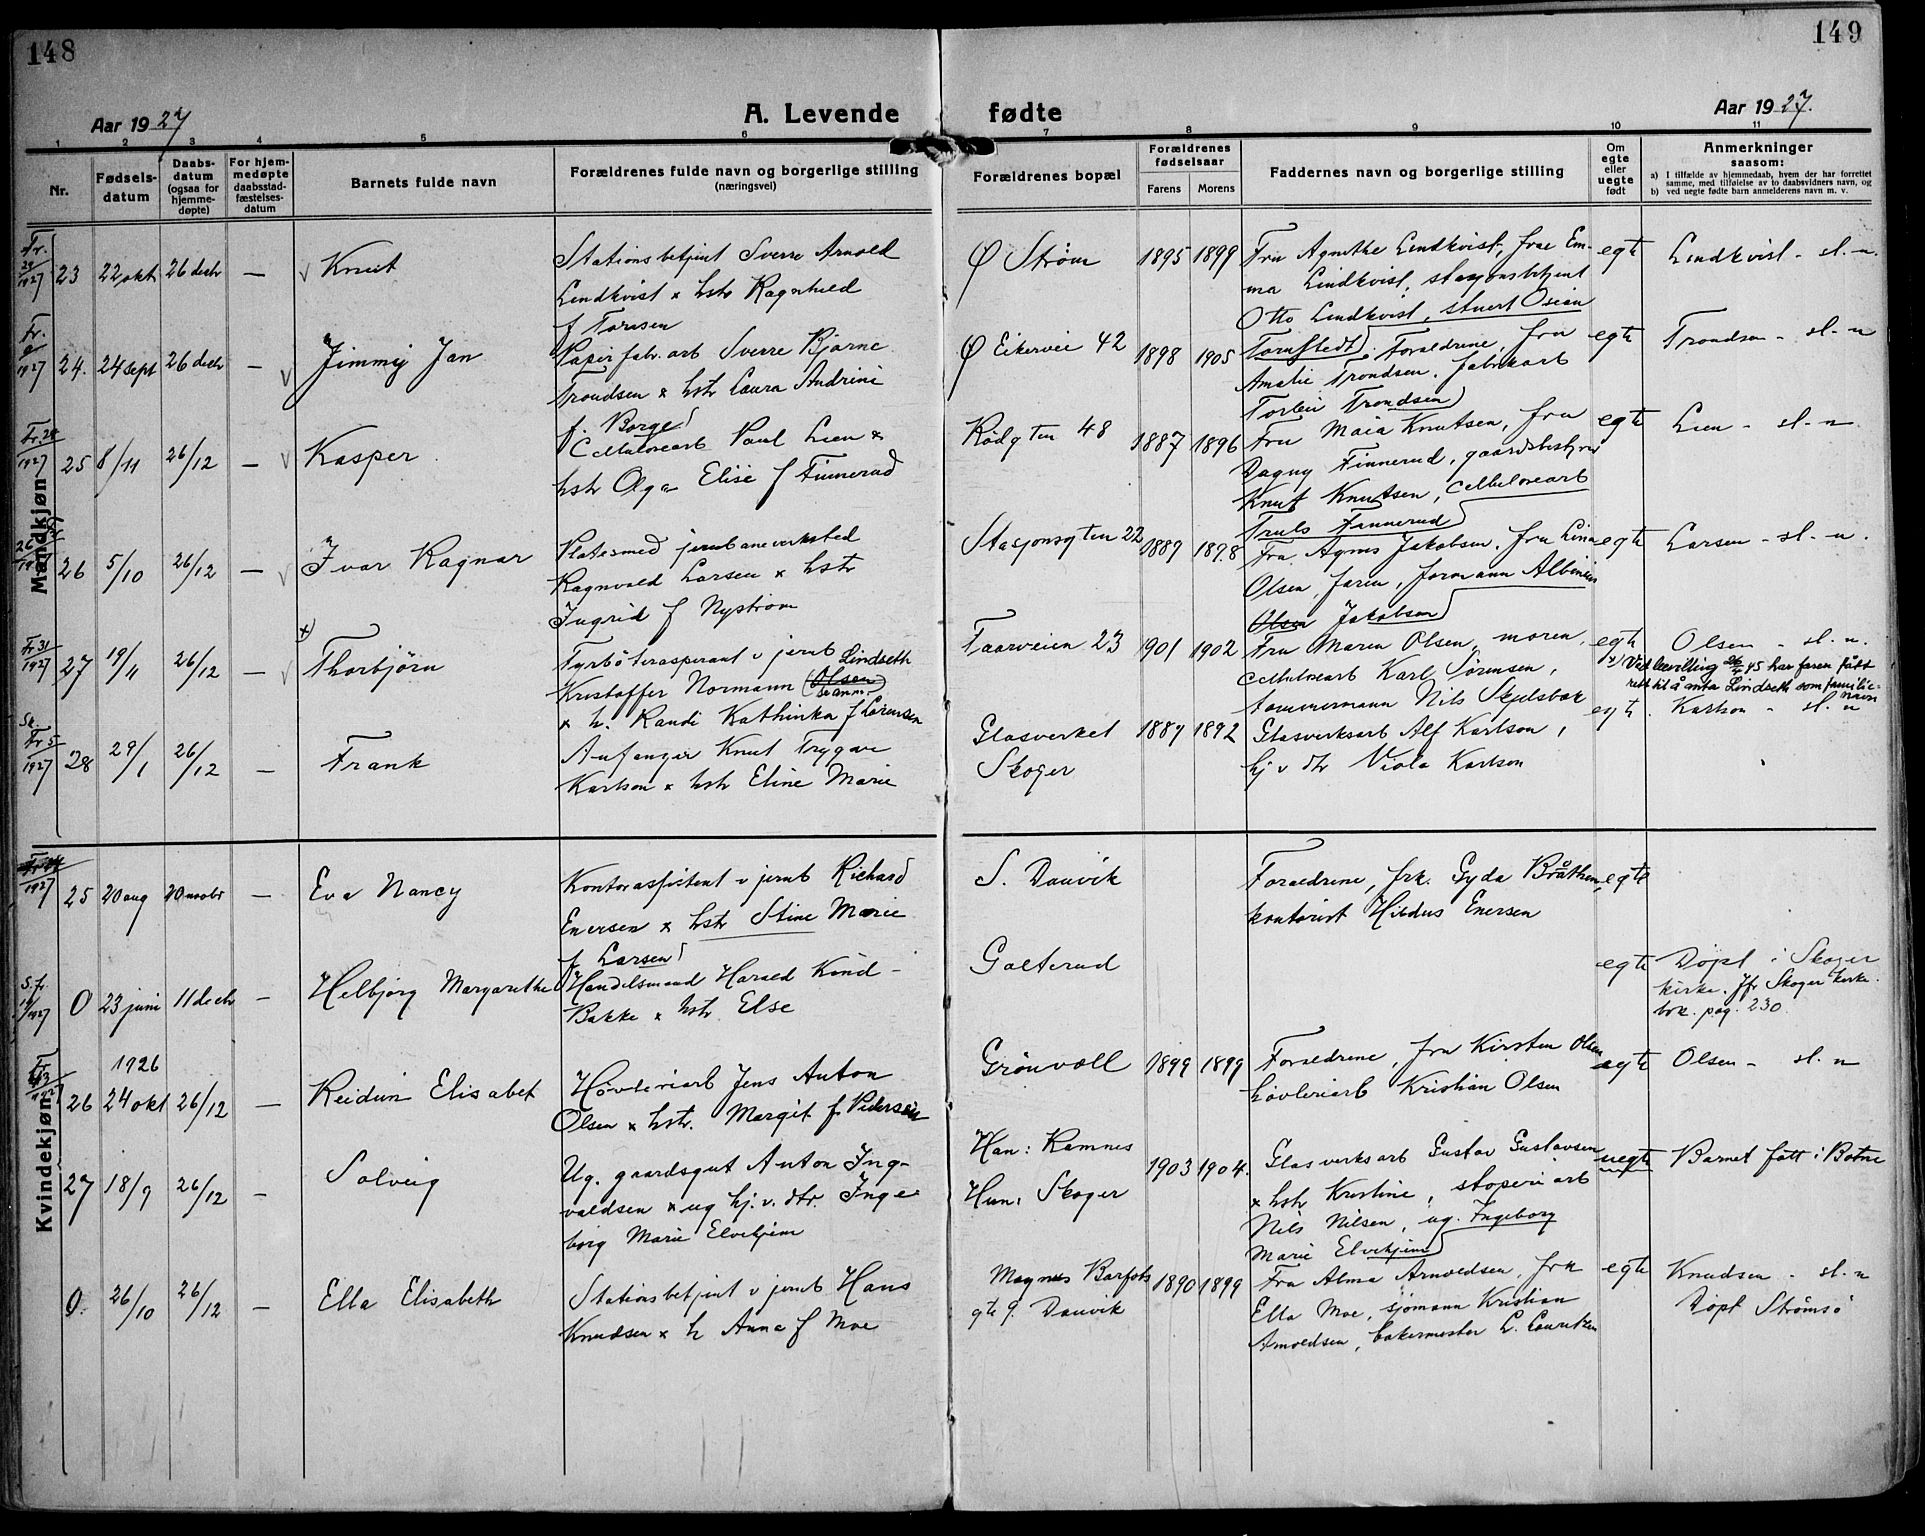 148
149
Aar 1927
A. Levende fødte
Aar 1927.
1 2 3 4 5 6 7 8 9 10 11
Nr.
Fødsels-
datum
Daabs-
datum
(ogsaa for
hjemme-
døpte)
For hjem-
medøpte
daabsstad-
fæstelses-
datum
Barnets fulde navn
Forældrenes fulde navn og borgerlige stilling
(næringsvei)
Forældrenes bopæl
Forældrenes
fødselsaar
Farens Morens
Faddernes navn og borgerlige stilling
Om
egte
eller
uegte
født
Anmerkninger
saasom:
a) I tilfælde av hjemmedaab, hvem der har forrettet
samme, med tilføielse av to daabsvidners navn, og
b) ved uegte fødte barn anmelderens navn m. v.
Mandkjøn
Fr. 29/1927 23 22 okt 26 decbr — Knut
Stationsbetjent Sverre Arnold
Lindkvist x hstr Ragnhild
f Toresen
Ø Strøm 1895 1899
Fru Agnethe Lindkvist, frue Em-
ma Lindkvist, stasjonsbetjent
Otto Lindkvist, stuert Osian
Tornstedt
egte Lindkvist - sl. n.
Fr. 1927 24. 24 sept 26 decbr — Jimmij Jan
Papirfabr.arb Sverre Bjarne
Trondsen x hstr Laura Andrine
f. Borge
Ø Eikervei 42 1898 1905
Forældrene, fru
Amalie Trondsen, fabrikarb
Torleiv Trondsen
egte Trondsen - sl. n
Fr. 1927 25 8/11 26/12 — Kasper
Cellulosearb Paul Lien x
hstr Olga Elise f Finnerud
Rødgten 48 1887 1896
Fru Maia Knutsen, fru
Dagny Finnerud, gaardsbestyrer
Knut Knutsen, cellulosearb
Truls Finnerud
egte Lien - sl. n
26 5/10 26/12 — Ivar Ragnar
Platesmed jernbaneverksted
Ragnvald Larsen x hstr
Ingrid f Nystrøm
Stasjonsgten 22 1889 1898
Fru Agnes Jakobsen, fru Lina
Olsen, faren, formann Albinius
Olsen Jakobsen
egte Larsen - sl. n.
Fr 31/1927 27 19/4 26/12 — x) Thorbjørn
Fyrbøteraspirant v jernb Lindseth
Kristoffer Normann (Olsen)
x h. Randi Kathinka f Lorensen
Faarveien 23 1901 1902
Fru Maren Olsen, moren,
cellulosearb Karl Sørensen,
tømmermann Nils Skjelsbæk
egte Olsen - sl. n.
x) Ved bevilling 26/4 45 har faren fått
rett til å anta Lindseth som familie-
navn
Sk. Fr 5/1927 28 29/1 26/12 — Frank
Anfanger Knut Trygve
Karlson x hstr Eline Marie
Glasverket
Skoger
1887 1892
Glasverksarb Alf Karlson,
hj v dtr Viola Karlson
egte Karlson - sl. n
Kvindekjøn
1927 25 20 aug 20 novbr — Eva Nancy
Kontorassistent v jernb Richard
Enersen x hstr Stine Marie
f Larsen
S. Danvik
Forældrene, frk. Gyda Bråthen,
kontorist Hildus Enersen
egte
S. fr 1927 0 23 juni 11 decbr — Helbjørg Margarethe
Handelsmand Harald Kind-
Bakke x hstr Else
Galterud
egte Døpt i Skoger
kirke. Jfr Skoger kirke-
bok pag. 230
Fr 26 1926 24 okt 26/12 — Reidun Elisabet
Høvleriarb Jens Anton
Olsen x hstr. Margit f. Pedersen
Grønvoll 1899 1899
Forældrene, fru Kirsten Olsen
høvleriarb Kristian Olsen
egte Olsen - sl. n
27 18/9 26/12 — Solveig
Ug. gaardsgut Anton Ing-
valdsen x ug hj. v. dtr. Inge
borg Marie Elvekjem
Han: Ramnes
Hun: Skoger
1903 1904.
Glasverksarb Gustav Gustavsen
x hstr Kristine, støperiarb
Nils Nilsen, ug. Ingeborg
Marie Elvekjem
uegte Barnet født i Botne
0. 26/10 26/12 — Ella Elisabeth
Stationsbetjent v jernb Hans
Knudsen x h Anna f Moe
Magnus Barfots
gt 9. Danvik
1890 1899
Fru Alma Arnoldsen, fru
Ella Moe, sjømann Kristian
Arnoldsen, bakermester L. Lauritzen
egte Knudsen - sl. n
Døpt Strømsø